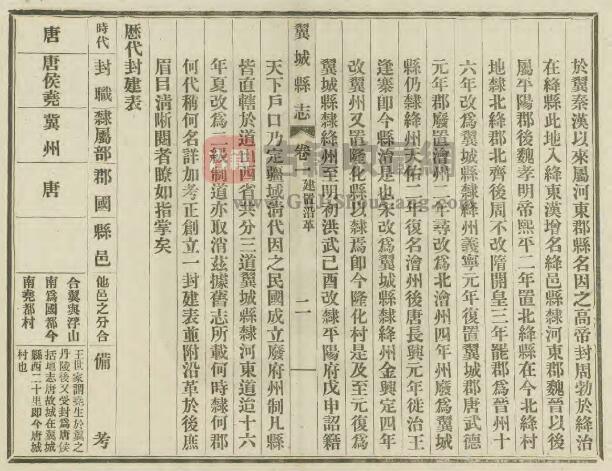 於翼秦漢以來屬河東郡縣名因之高帝封周勃於絳治
在絳縣此地入絳東漢增名絳邑縣隸河東郡魏晉以後
屬平陽郡後魏孝明帝熙平二年置北絳縣在今北絳村
地隸北絳郡北齊後周不改隋開皇三年罷郡爲晉州十
六年改爲翼城縣隸絳州義寧元年復置翼城郡唐武德
元年郡廢置澮州二年尋改爲北澮州四年州廢爲翼城
縣仍隸絳州天佑二年復名澮州後唐長興元年徙治王
逢寨即今縣治是也宋改爲翼城縣隸絳州金興定四年
改翼州又置隆化縣以隸焉即今隆化村是及至元復爲
翼城縣隸絳州至明初洪武己酉改隸平陽府戊申詔籍
翼城縣志
卷一
建置沿革
二
天下戶口乃定疆域清代因之民國成立廢府州制凡縣
皆直轄於道廿四省共分三道翼城縣隸河東道這十六
年夏改爲二級制道亦取消茲據舊志所載何時隸何郡
何代稱何名詳加考正創立一封建表並附沿革於後庶
眉目清晰閱者瞭如指掌矣
歷代封建表
時代
封職
隸屬部
郡國縣邑
他邑之分合
備考
唐
唐侯堯
冀州
唐
合翼與浮山
南爲國都今
南堯都村
王世家謂堯生於翼之
丹陵後又受封爲唐侯
括地志唐故城在翼城
縣西二十里即今唐城
村也